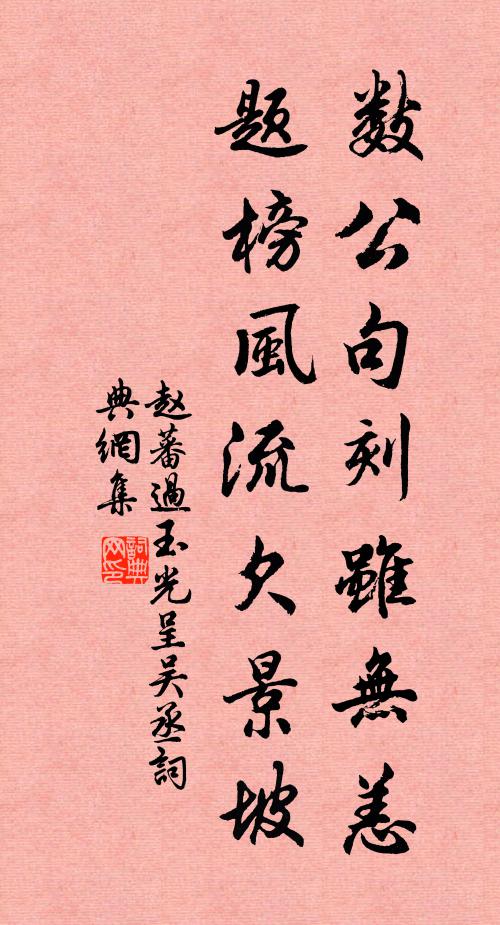 数公句刻雖無恙
题榜風流欠景坡
赵蕃過玉光呈吴丞詞
典網集
詞典
网印